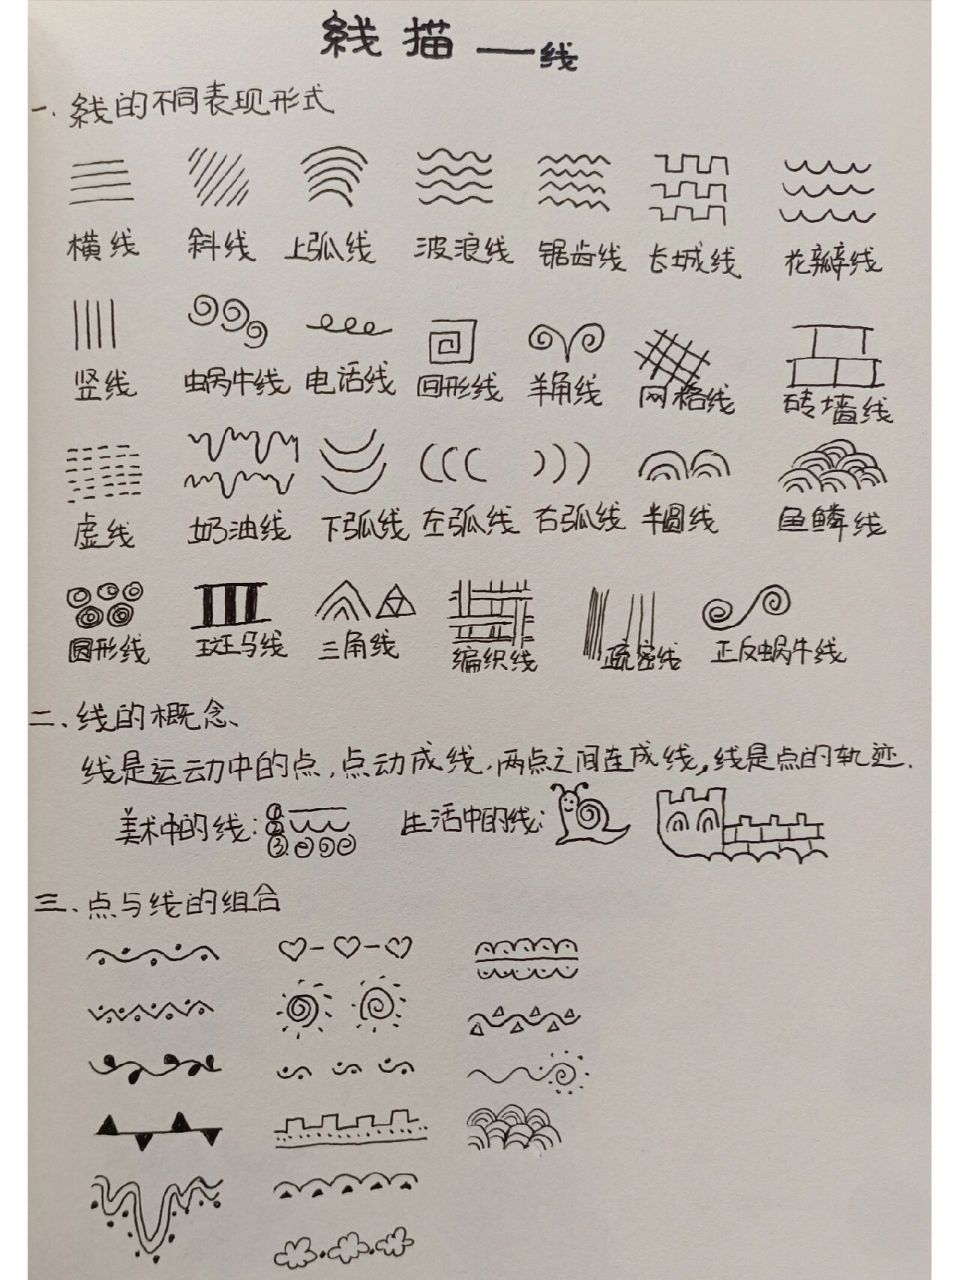 线描——线
一.线的不同表现形式
横线 斜线 上弧线 波浪线 锯齿线 长城线 花瓣线
竖线 蜗牛线 电话线 回形线 羊角线 网格线 砖墙线
虚线 奶油线 下弧线 左弧线 右弧线 半圆线 鱼鳞线
圆形线 斑马线 三角线 编织线 疏密线 正反蜗牛线
二、线的概念、
线是运动中的点,点动成线,两点之间连成线,线是点的轨迹.
美术中的线: 生活中的线:
三、点与线的组合